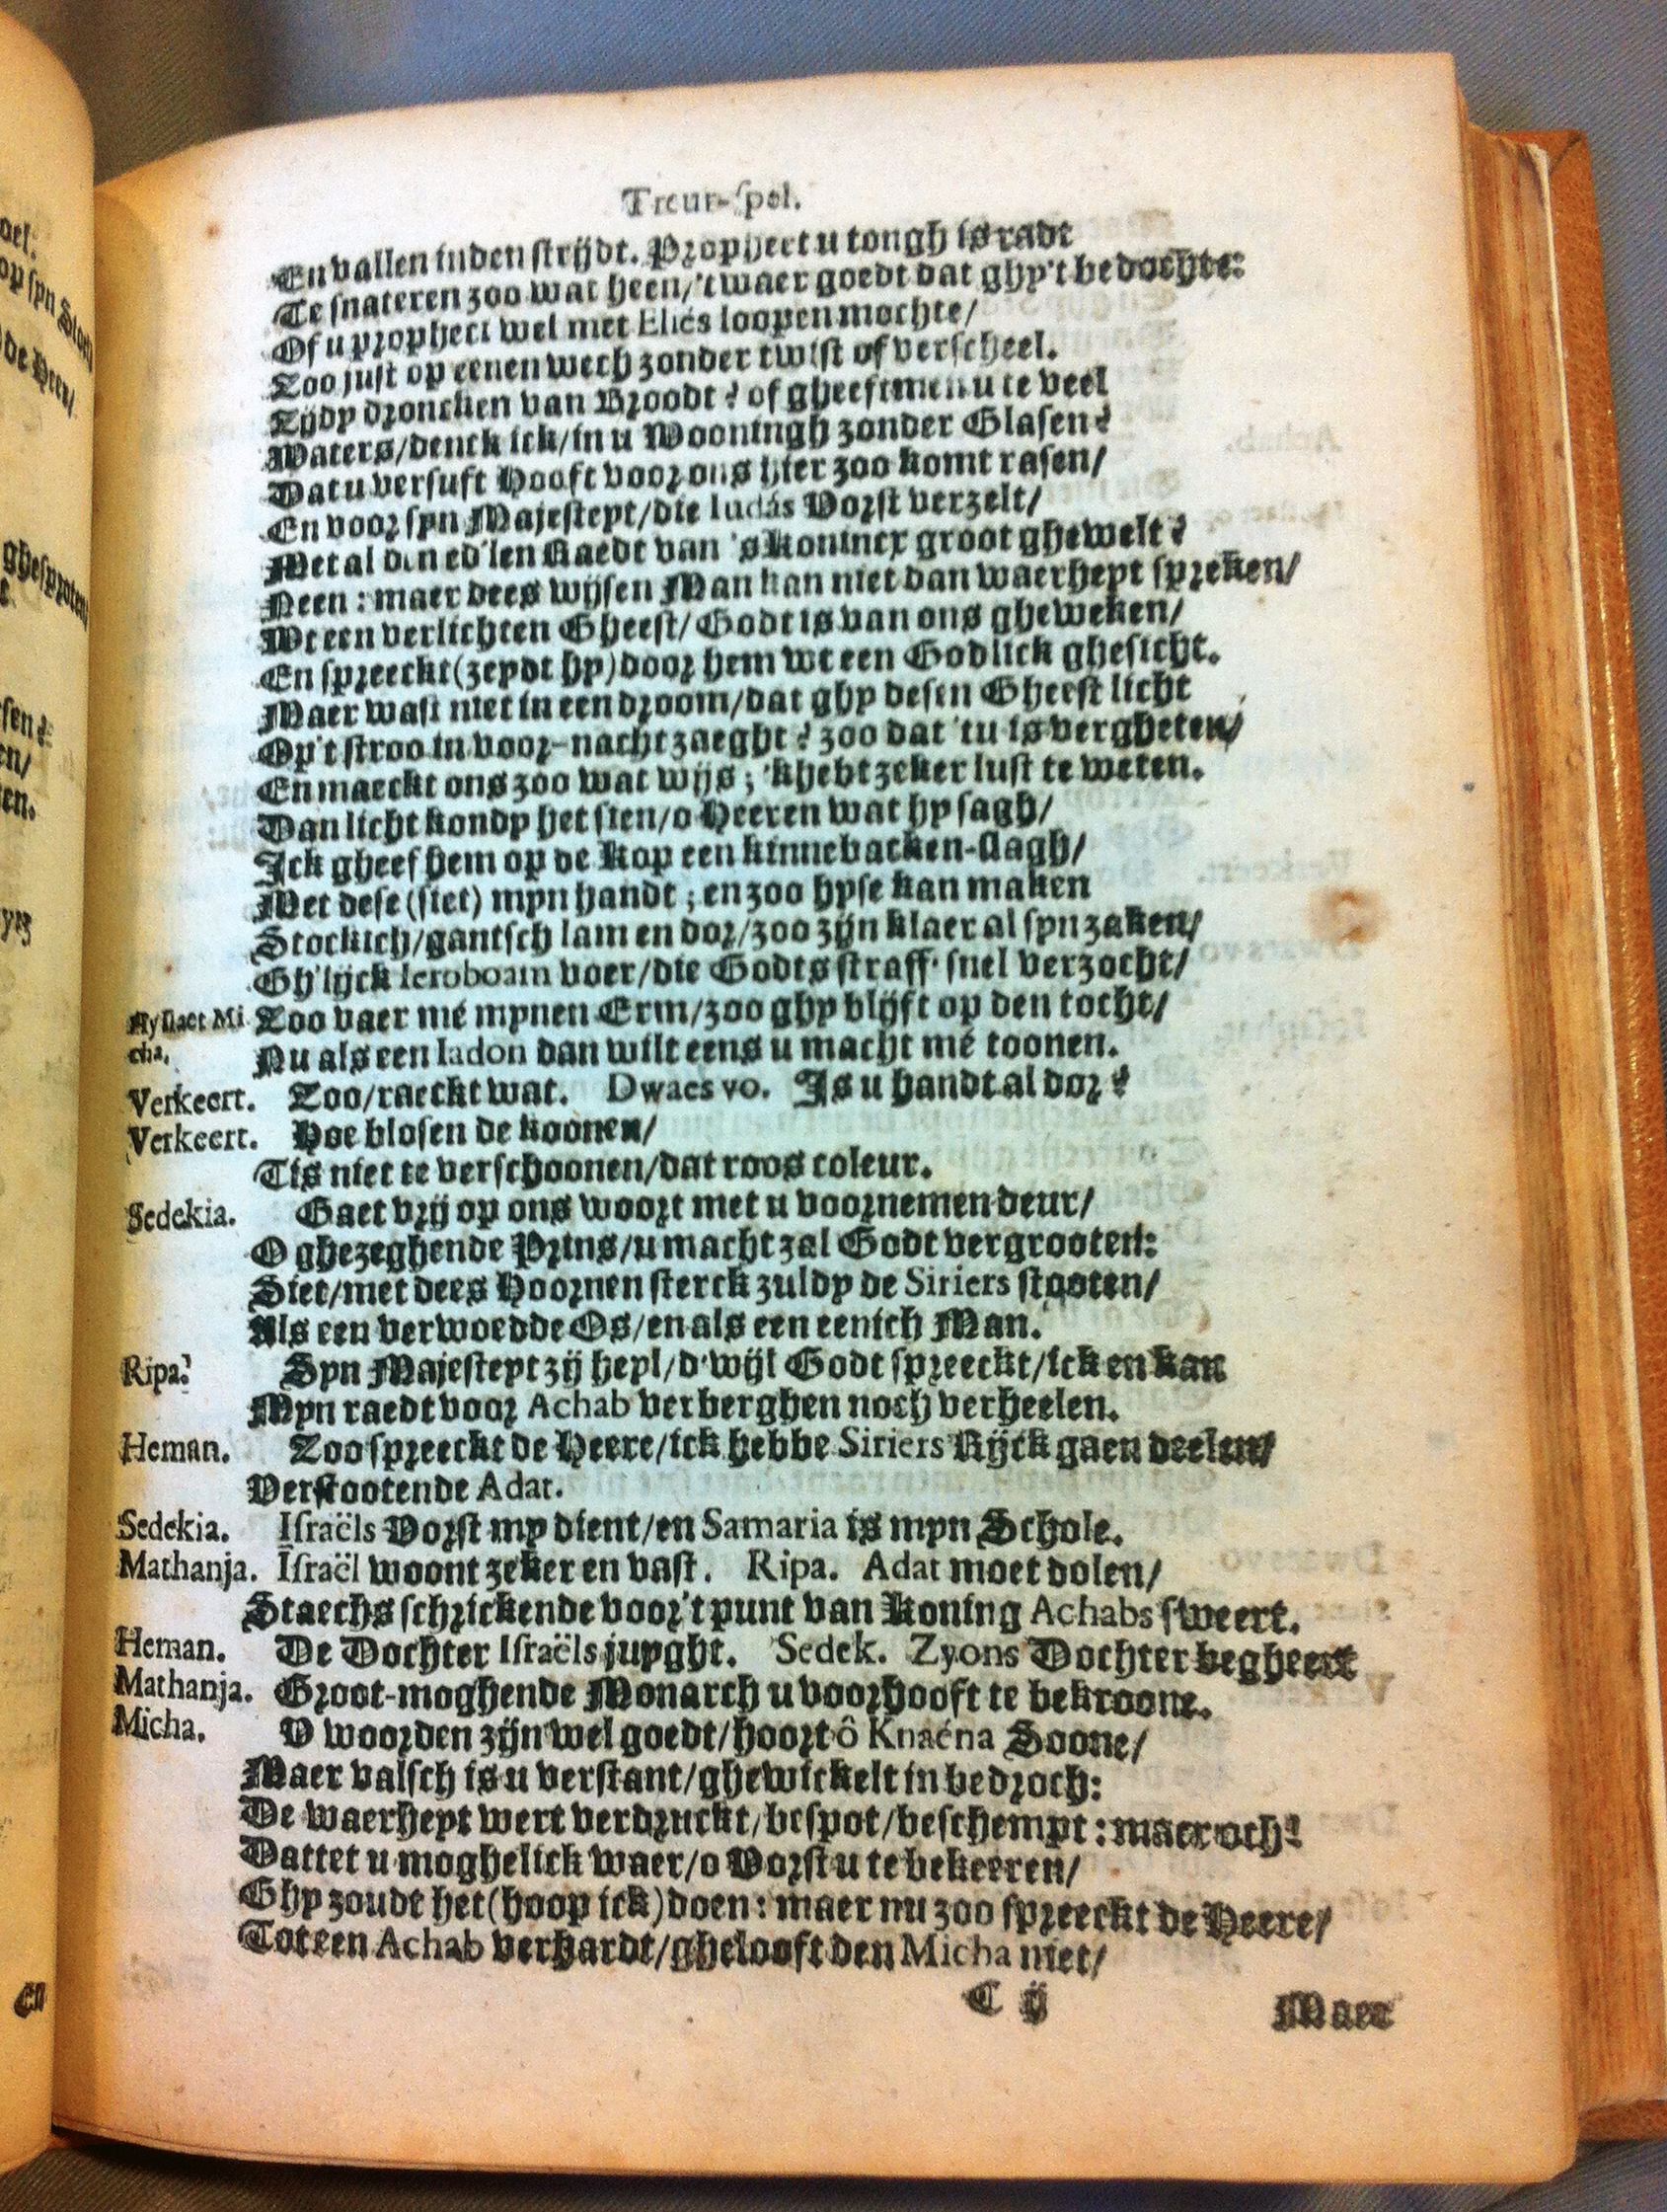 Treur-spel.
En vallen inden strijdt. Propheet u tongh is radt
Te snateren zoo wat heen/'t waer goedt dat ghy't bedochte:
Of u propheci wel met Eliés loopen mochte/
Zoo just op eenen wech zonder twist of verscheel.
Zijdy droncken van Broodt? of gheeftmen u te veel
Waters/denck ick/in u Wooningh zonder Glasen?
Dat u versuft Hooft voor ons hier zoo komt rasen/
En voor syn Majesteyt/die Iudás Vorst verzelt/
Met al den ed'len Raedt van 's Konincx groot ghewelt?
Neen: maer dees wijsen Man kan niet dan waerheyt spreken/
Wt een verlichten Gheest/Godt is van ons gheweken/
En spreeckt (zeydt hy) door hem wt een Godlick ghesicht.
Maer wast niet in een droom/dat ghy desen Gheest licht
Op 't stroo in voor-nacht zaeght? zoo dat 'tu is vergheten/
En maeckt ons zoo wat wijs; 'khebt zeker lust te weten.
Dan licht kondy het sien/o Heeren wat hy sagh/
Ick gheef hem op de Kop een kinnebacken-slagh/
Met dese (siet) myn handt; en zoo hyse kan maken
Stockich/gantsch lam en dor/zoo zijn klaer al syn zaken/
Gh'lijck Ieroboam voer/die Godts straff' snel verzocht/
Hy slaet Mi Zoo vaer mé mynen Erm/zoo ghy blijft op den tocht/
cha. Nu als een Iadon dan wilt eens u macht mé toonen.
Verkeert. Zoo/raeckt wat. Dwaes vo. Is u handt al dor?
Verkeert. Hoe blosen de koonen/
Tis niet te verschoonen/dat roos coleur.
Sedekia. Gaet vrij op ons woort met u voornemen deur/
O ghezeghende Prins/u macht zal Godt vergrooten:
Siet/met dees Hoornen sterck zuldy de Siriers stooten/
Als een verwoedde Os/en als een eenich Man.
Ripa. Syn Majesteyt zij heyl/d'wijl Godt spreeckt/ick en kan
Myn raedt voor Achab verberghen noch verheelen.
Heman. Zoo spreeckt de Heere/ick hebbe Siriers Rijck gaen deelen/
Verstootende Adat.
Sedekia. Israëls Vorst my dient/en Samaria is myn Schole.
Mathanja. Israël woont zeker en vast. Ripa. Adat moet dolen/
Staechs schrickende voor 't punt van Koning Achabs sweert.
Heman. De Dochter Israëls juyght. Sedek. Zyons Dochter begheert
Mathanja. Groot-moghende Monarch u voorhooft te bekroone.
Micha. V woorden zijn wel goedt/hoort ô Knaéna Soone/
Maer valsch is u verstant/ghewickelt in bedroch:
De waerheyt wert verdruckt/bespot/beschempt: maer och!
Dattet u moghelick waer/o Vorst u te bekeeren/
Ghy zoudt het (hoop ick) doen: maer nu zoo spreeckt de Heere/
Tot een Achab verhardt/ghelooft den Micha niet/
C ij Maer